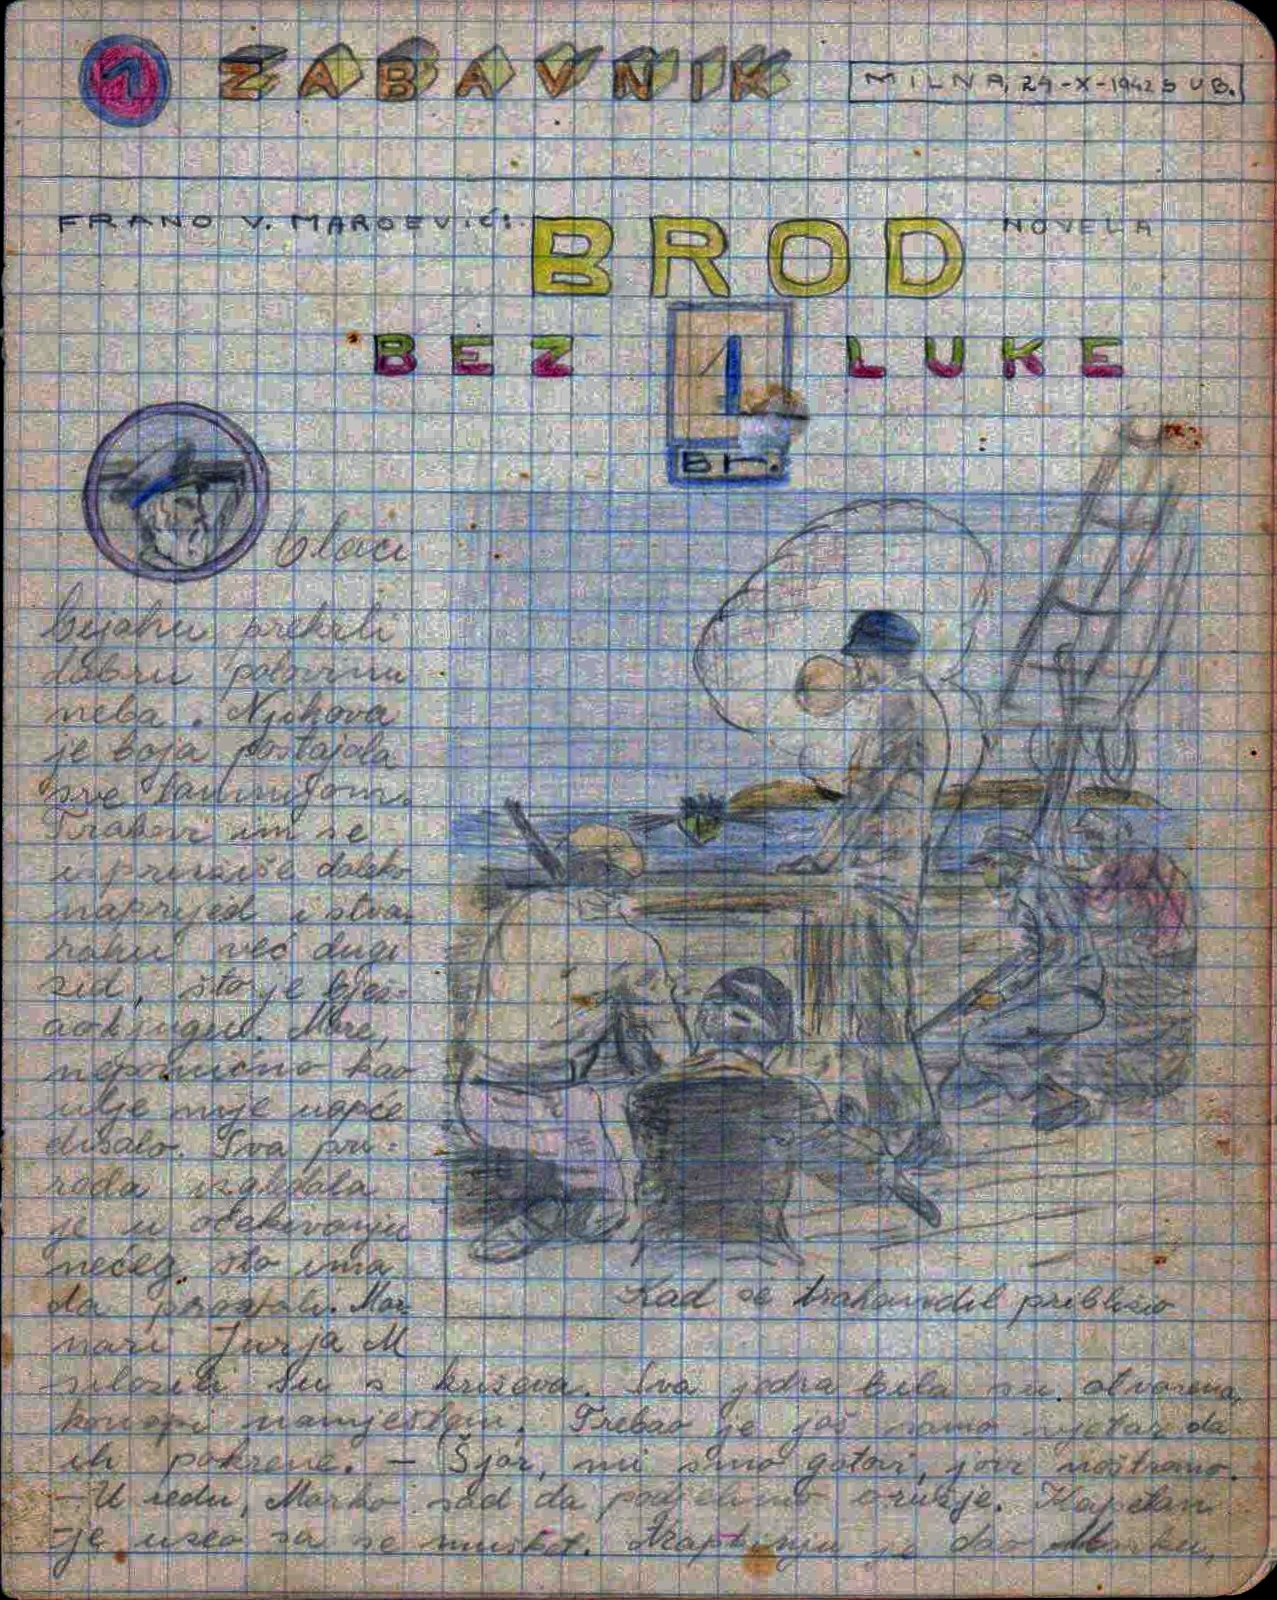 1 ZABAVNIK
MILNA, 24-X-1942 SUB.
FRANO V. MAROEVIĆ: BROD NOVELA
BEZ 1 LUKE
Br.
Oblaci
bijahu prekrili
dobru polovinu
neba. Njihova
je boja postajala
sve tamnijom.
Trakovi im se
ispružiše daleko
naprijed i stva-
rahu već dugi
zid, što je bjes-
juga. More,
nepomično kao
ulje nije uopće
disalo. Sva pri-
roda izgledala
je u očekivanju
nečeg što ima
da propali. Mor-
nari Jurja M
silazili su s križeva. Sva jedra bila su otvorena,
konopi namješteni. Trebao je još samo vjetar da
ih pokrene. – Šjor, mi smo gotovi, javi noštromo.
– U redu, Marko sad da podjelimo oružje. Kapetan
je uzeo za se muškt. je dao Marku,
Kad se trabakundel približio